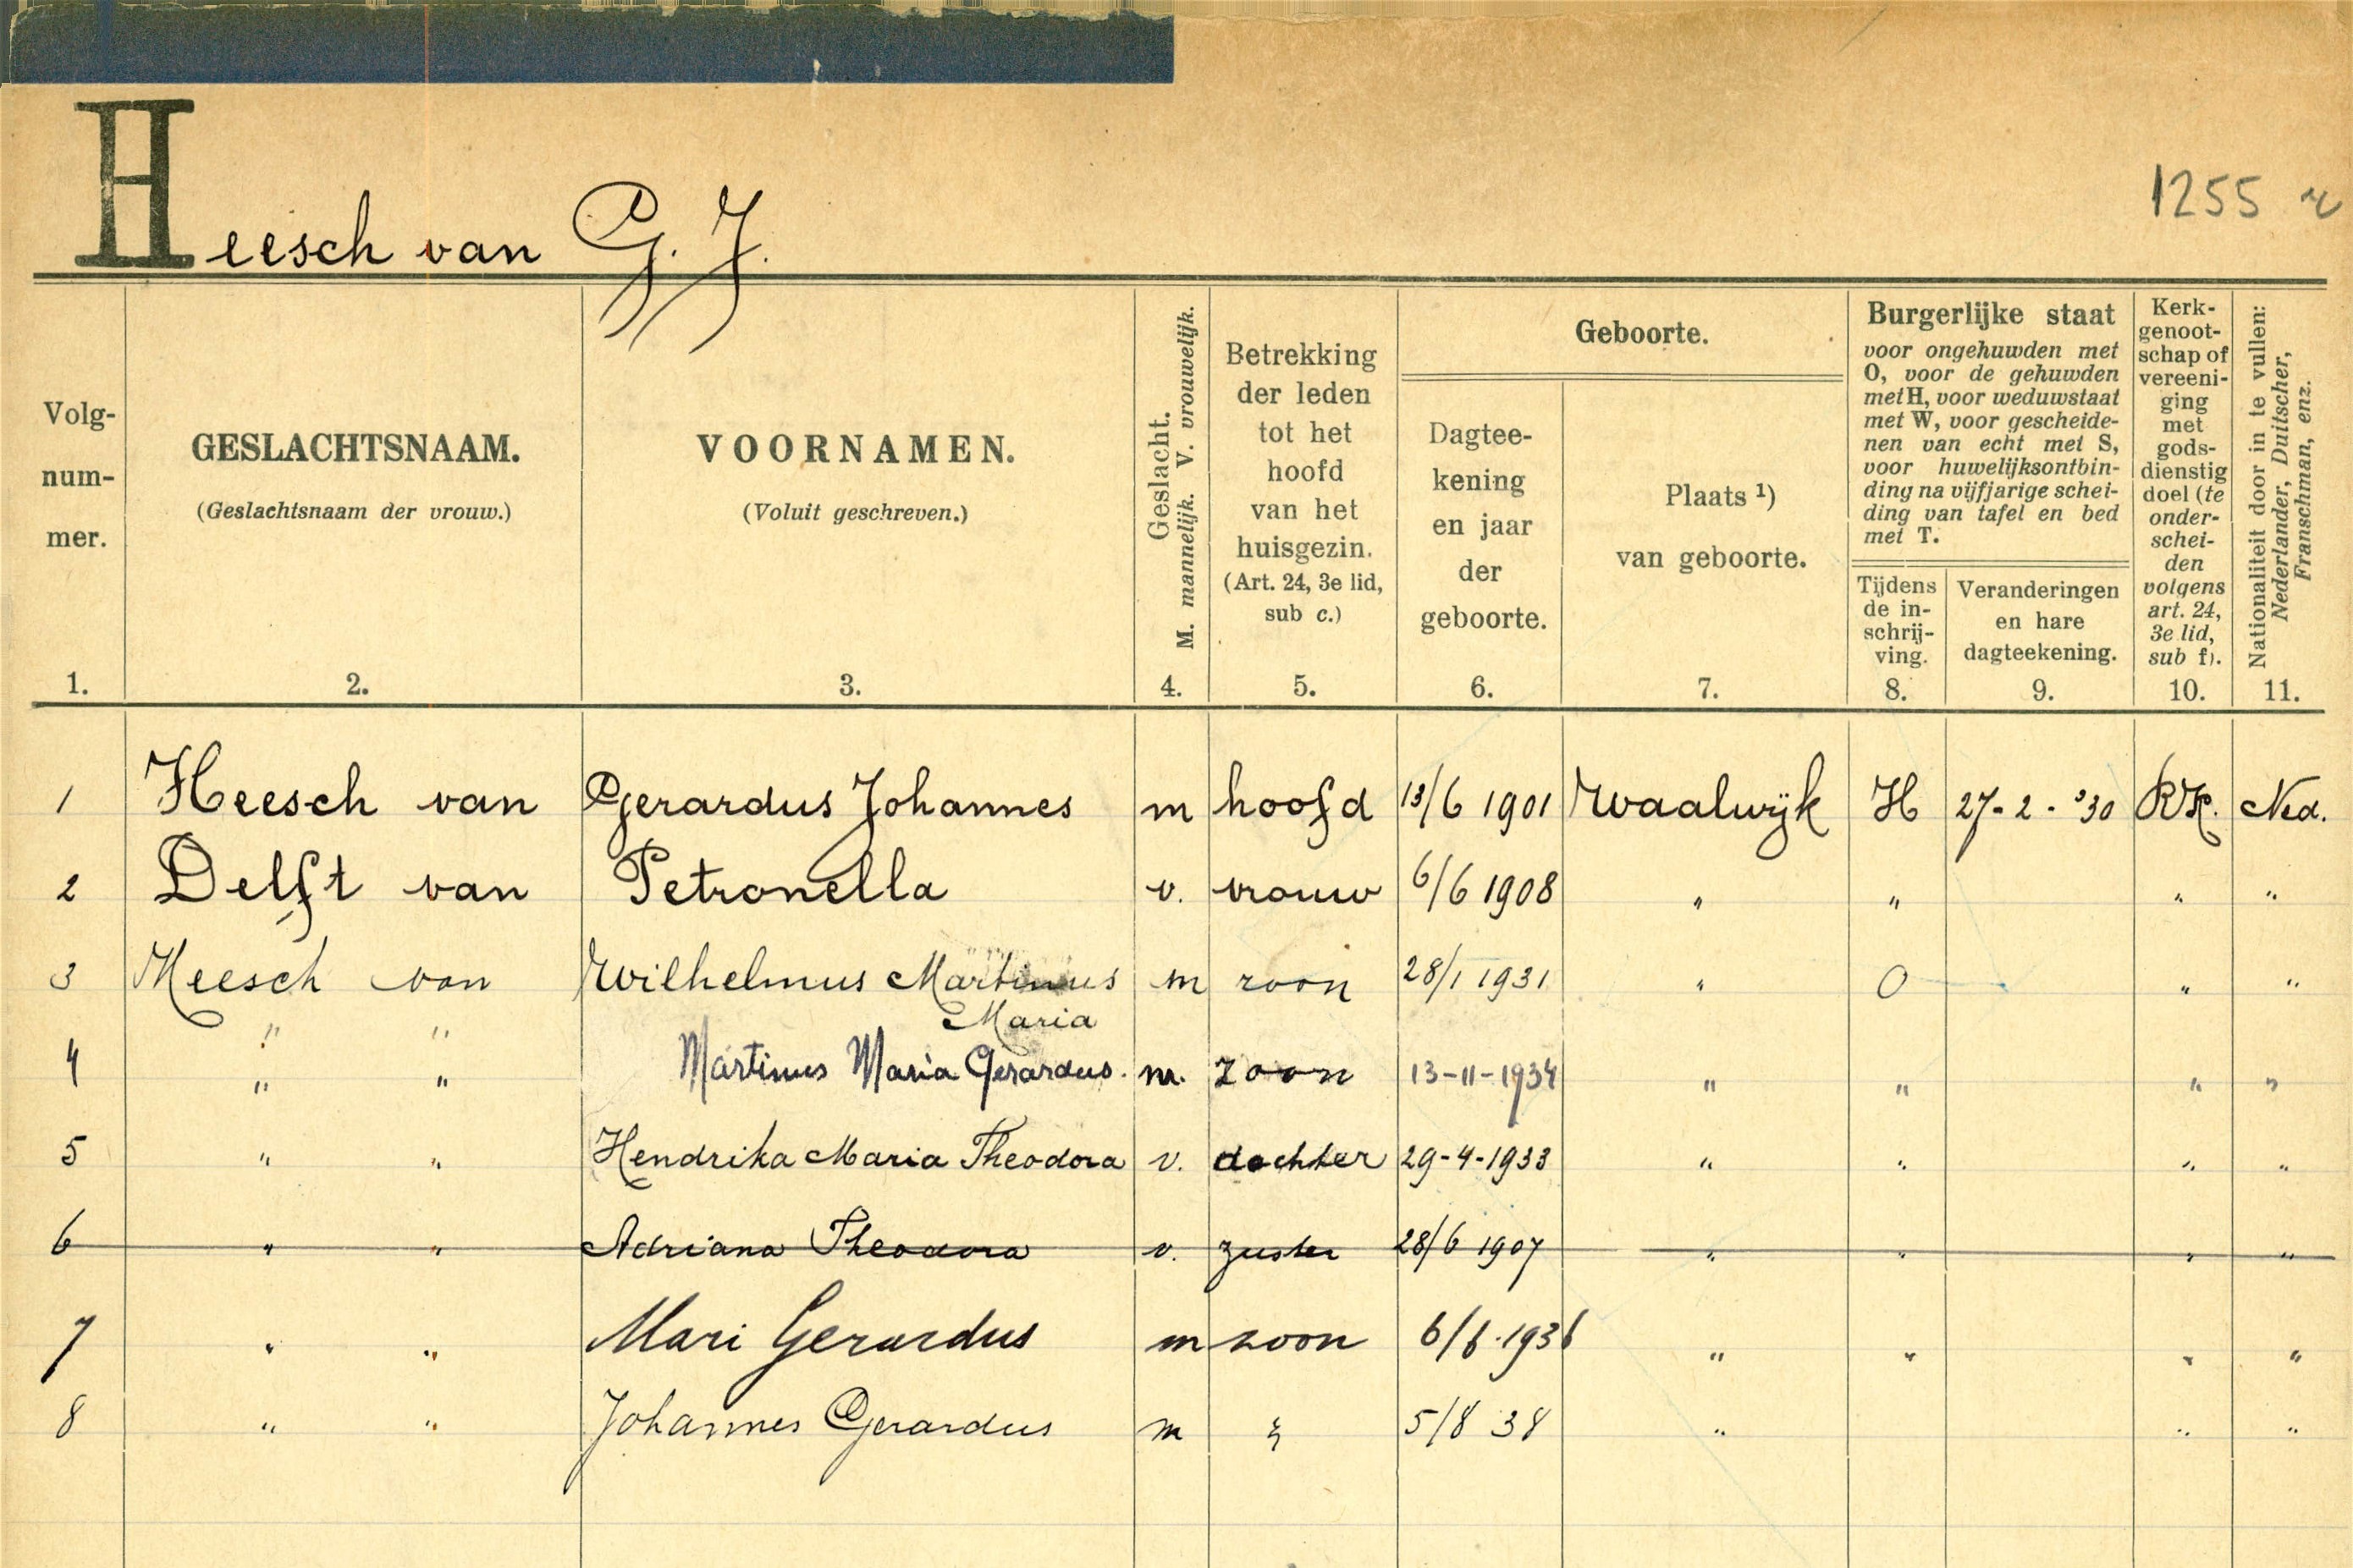 Heesch van G. J.
1255 r
Volg-
num-
mer.
1.
GESLACHTSNAAM.
(Geslachtsnaam der vrouw.)
2.
VOORNAMEN.
(Voluit geschreven.)
3.
Geslacht.
M. mannelijk. V. vrouwelijk.
4.
Betrekking
der leden
tot het
hoofd
van het
huisgezin.
(Art. 24, 3e lid,
sub c.)
5.
Geboorte.
Dagtee-
kening
en jaar
der
geboorte.
6.
Plaats ¹)
van geboorte.
7.
Burgerlijke staat
voor ongehuwden met
O, voor de gehuwden
met H, voor weduwstaat
met W, voor gescheide-
nen van echt met S,
voor huwelijksontbin-
ding na vijfjarige schei-
ding van tafel en bed
met T.
Tijdens
de in-
schrij-
ving.
8.
Veranderingen
en hare
dagteekening.
9.
Kerk-
genoot-
schap of
vereeni-
ging
met
gods-
dienstig
doel (te
onder-
schei-
den
volgens
art. 24,
3e lid,
sub f).
10.
Nationaliteit door in te vullen:
Nederlander, Duitscher,
Franschman, enz.
11.
1 Heesch van Gerardus Johannes m hoofd 13/6 1901 Waalwijk H 27-2-'30 RK. Ned.
2 Delft van Petronella v. vrouw 6/6 1908 " " " "
3 Heesch van Wilhelmus Martinus m zoon 28/1 1931 " O " "
" " Maria
4 " " Martinus Maria Gerardus. m. zoon 13-11-1934 " " " "
5 " " Hendrika Maria Theodora v. dochter 29-4-1933 " " " "
6 " " Adriana Theodora v. zuster 28/6 1907 " " " "
7 " " Mari Gerardus m zoon 6/6.1936 " " " "
8 " " Johannes Gerardus m " 5/8 38 " " "